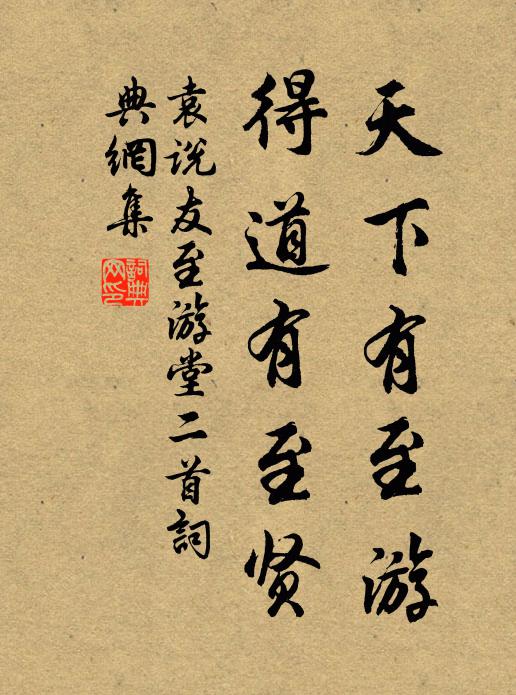 天下有至游
得道有至贤
袁說友至游堂二首詞
典網集
詞典网印